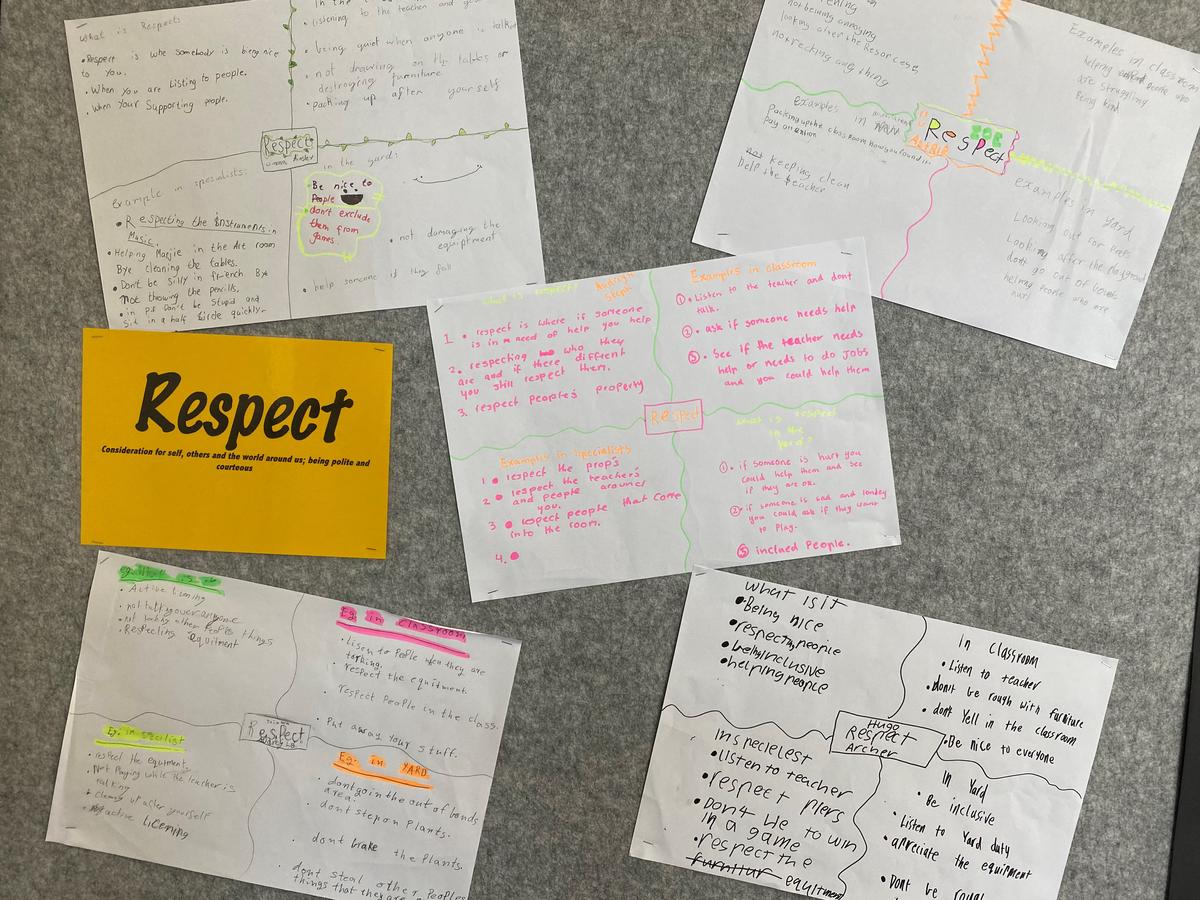 What is Respects
•Respect is whe somebody is bieng nice
to you.
• When you are Listing to people.
• When Your Supporting people.
• listening to the teacher and
• being quiet when anyone is
• not drawing on the tables or
destroying furniture
• packing up after yourself
Respect
example in specialists:
• Respecting the instruments in
Music.
• Helping Marjie in the Art room
Bye cleaning the tables.
• Don't be Silly in french Bye
Not throwing the pencills,
• in P.E Don't be Stupid and
Sit in a half Circle quickly.
in the yard:
Be nice to
People
don't exclude
them from
games.
• not damaging the
equiptment
• help someone if they fall
not beining annoying
looking after the Resorces
not recking any thing
Examples in classroom
helping people who
are struggling
Being kind
examples in
Packing up the classroom how you found it
Pay atention
keeping clean
help the teacher
Respect
examples in yard
Looking out for Preps
Looking after the playground
dont go out of bounds
helping people who are
hurt
Respect
Consideration for self, others and the world around us; being polite and
courteous
what is respect?
1. • respect is where if someone
is in a need of help you help
2. • respecting who they
are and if there diffrent
you still respect them.
3. respect people's property
Examples in classroom
1. • Listen to the teacher and dont
talk.
2. • ask if someone needs help
3. • See if the teacher needs
help or needs to do jobs
and you could help them
Respect
Examples in Specialists
1 • respect the prop's
2 • respect the teacher's
and people around
you.
3 • respect people that come
into the room.
4. •
what is respect
in the
Yard?
1. • if someone is hurt you
could help them and see
if they are ok.
2. • if someone is sad and lonley
you could ask if they want
to play.
3 inclued People.
• Active Licning
• not talking over anyone
• not taking other People things
• Respecting equitment
Eg: in classroom
• Listen to People when they are
talking.
• respect the equitment.
• respect People in the class.
• Put away your stuff.
Respect
Eg: in specilist
• respect the equtment
• Not Playing while the teacher is
talking
• cleany up after yourself
• active Licening
Eg: in YARD
• dont go in the out of bonds
area.
• dont step on Plants.
• dont brake the Plants.
• dont steal other Peoples
things that they are
What is It
• Being nice
• respecting people
• being inclusive
• helping people
In Classroom
• Listen to teacher
• Dont be rough with furniture
• dont Yell in the classroom
• Be nice to everyone
Hugo
Respect
Archer
Ins pecielest
• Listen to teacher
• respect Piers
• Don't lie to win
in a game
• respect the
furnitur equitment
In Yard
• Be inclusive
• Listen to Yard duty
• appreciate the equipment
• Dont be